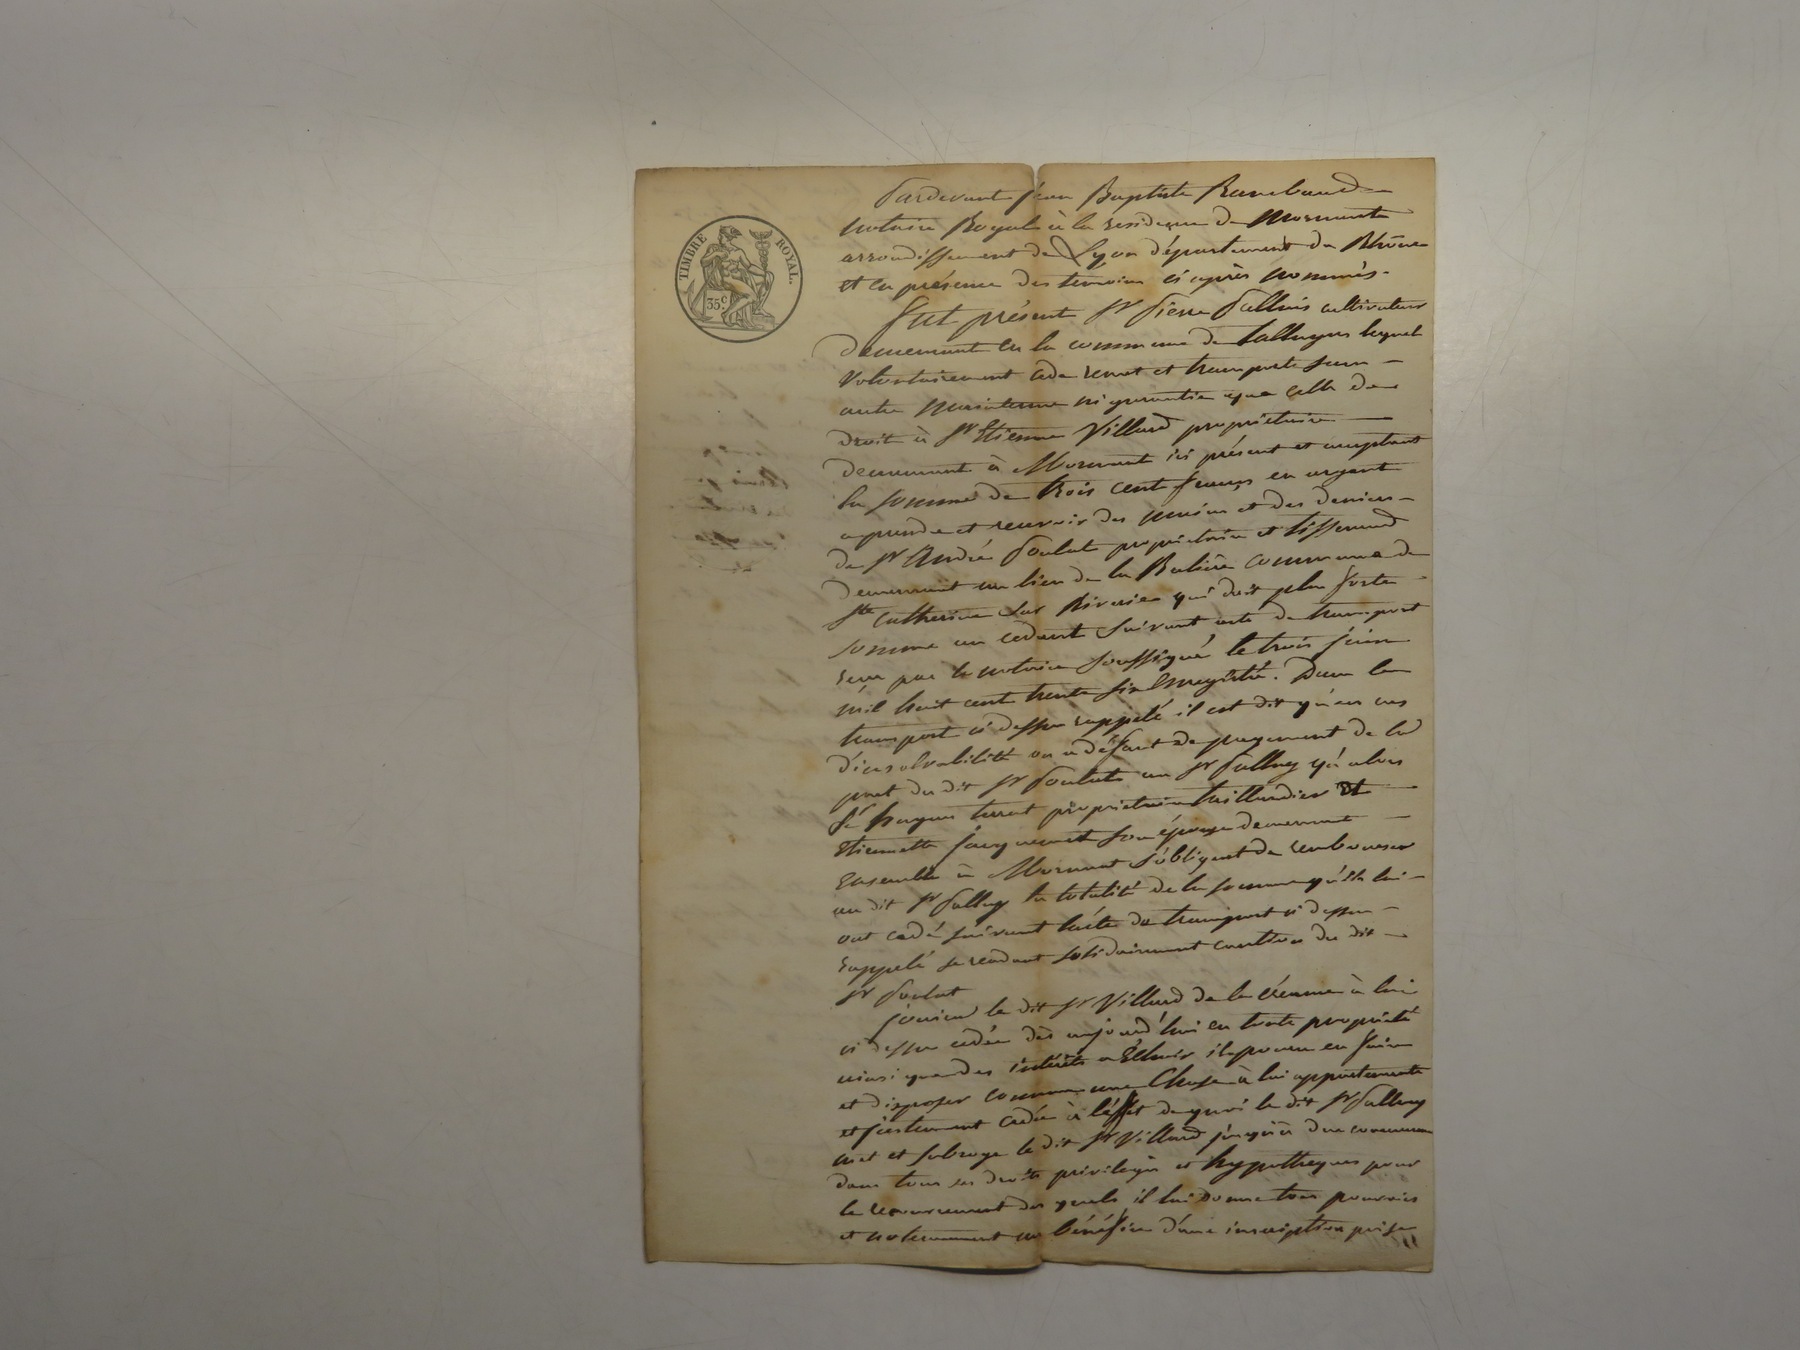 TIMBRE ROYAL.
35 c.
Pardevant Jean Baptiste Rambaud
notaire Royal à la residence de Mornant
arrondissement de Lyon département du Rhône
et en présence des témoins ci après nommés.
Fut présent Sr Pierre cultivateur
demeurant en la commune de Talluyers lequel
volontairement cede remet et transporte sans
autre maintenue ni garantie que celle de
droit à Sr Etienne Villard propriétaire
demeurant à Mornant ici présent et acceptant
la somme de trois cent francs en argent
a prendre et recevoir des mains et des deniers
de Sr André Poulat propriétaire et tisserand
demeurant au lieu de la commune de
Ste Catherine sur Riverie qui doit plus forte
somme au cedant suivant acte de transport
recu par le notaire soussigné le trois juin
mil huit cent trente six Enregistré. Dans le
transport ci dessus rappelé il est dit qu'en cas
d'insolvabilité ou a défaut de payement de la
part du dit Sr Poulat au Sr qu'alors
propriétaire taillandier et
Etiennette son épouse demeurant
Ensemble à Mornant s'obligent de rembourser
au dit Sr la totalité de la somme qu'ils lui
ont cedé suivant l'acte de transport ci dessus
rappelé se rendant solidairement cautions du dit
Sr Poulat
Jouira le dit Sr Villard de la créance à lui
ci dessus cédée dès aujourd'hui en toute propriété
ainsi que des intérêts a Echoir il pourra en faire
et disposer comme une Chose à lui appartenante
et justement cedée à l'éffet de quoi le dit Sr
met et subroge le dit Sr Villard jusqu'à due concurrence
dans tous ses droits privilèges et hypotheques pour
le recouvrement des quels il lui donne tous pouvoirs
et notamment au bénéfice d'une inscription prise